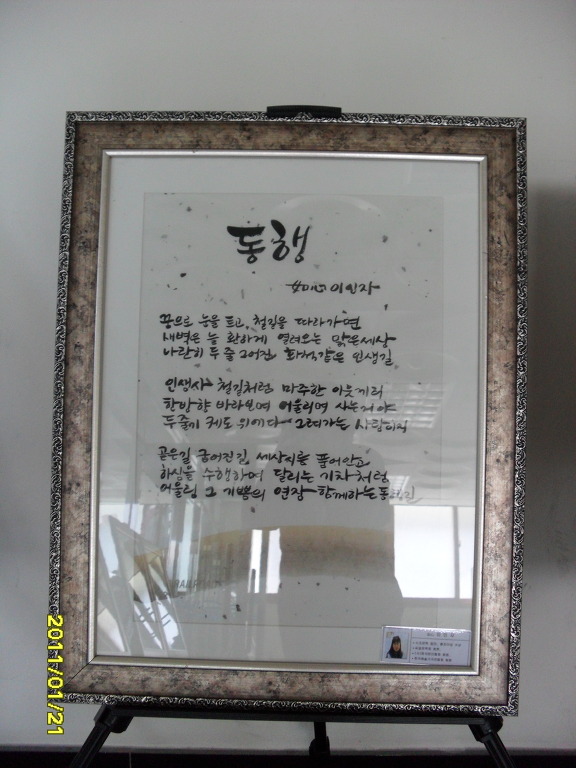 동행
이인자
꿈으로 눈을 뜨고, 철길을 따라가면
새벽은 늘 환하게 열려오는 맑은세상
나란히 두 줄 그어진 화석같은 인생길
인생사 철길처럼 마주한 이웃끼리
한방향 바라보며 어울리며 사는거야
두줄기 궤도 위에다 그려가는 사랑이지
곧은길 굽어진길, 세상사를 품어안고
하심을 수행하며 달리는 기차처럼
어울림 그 기쁨의 연장 함께하는 동
2011/01/21